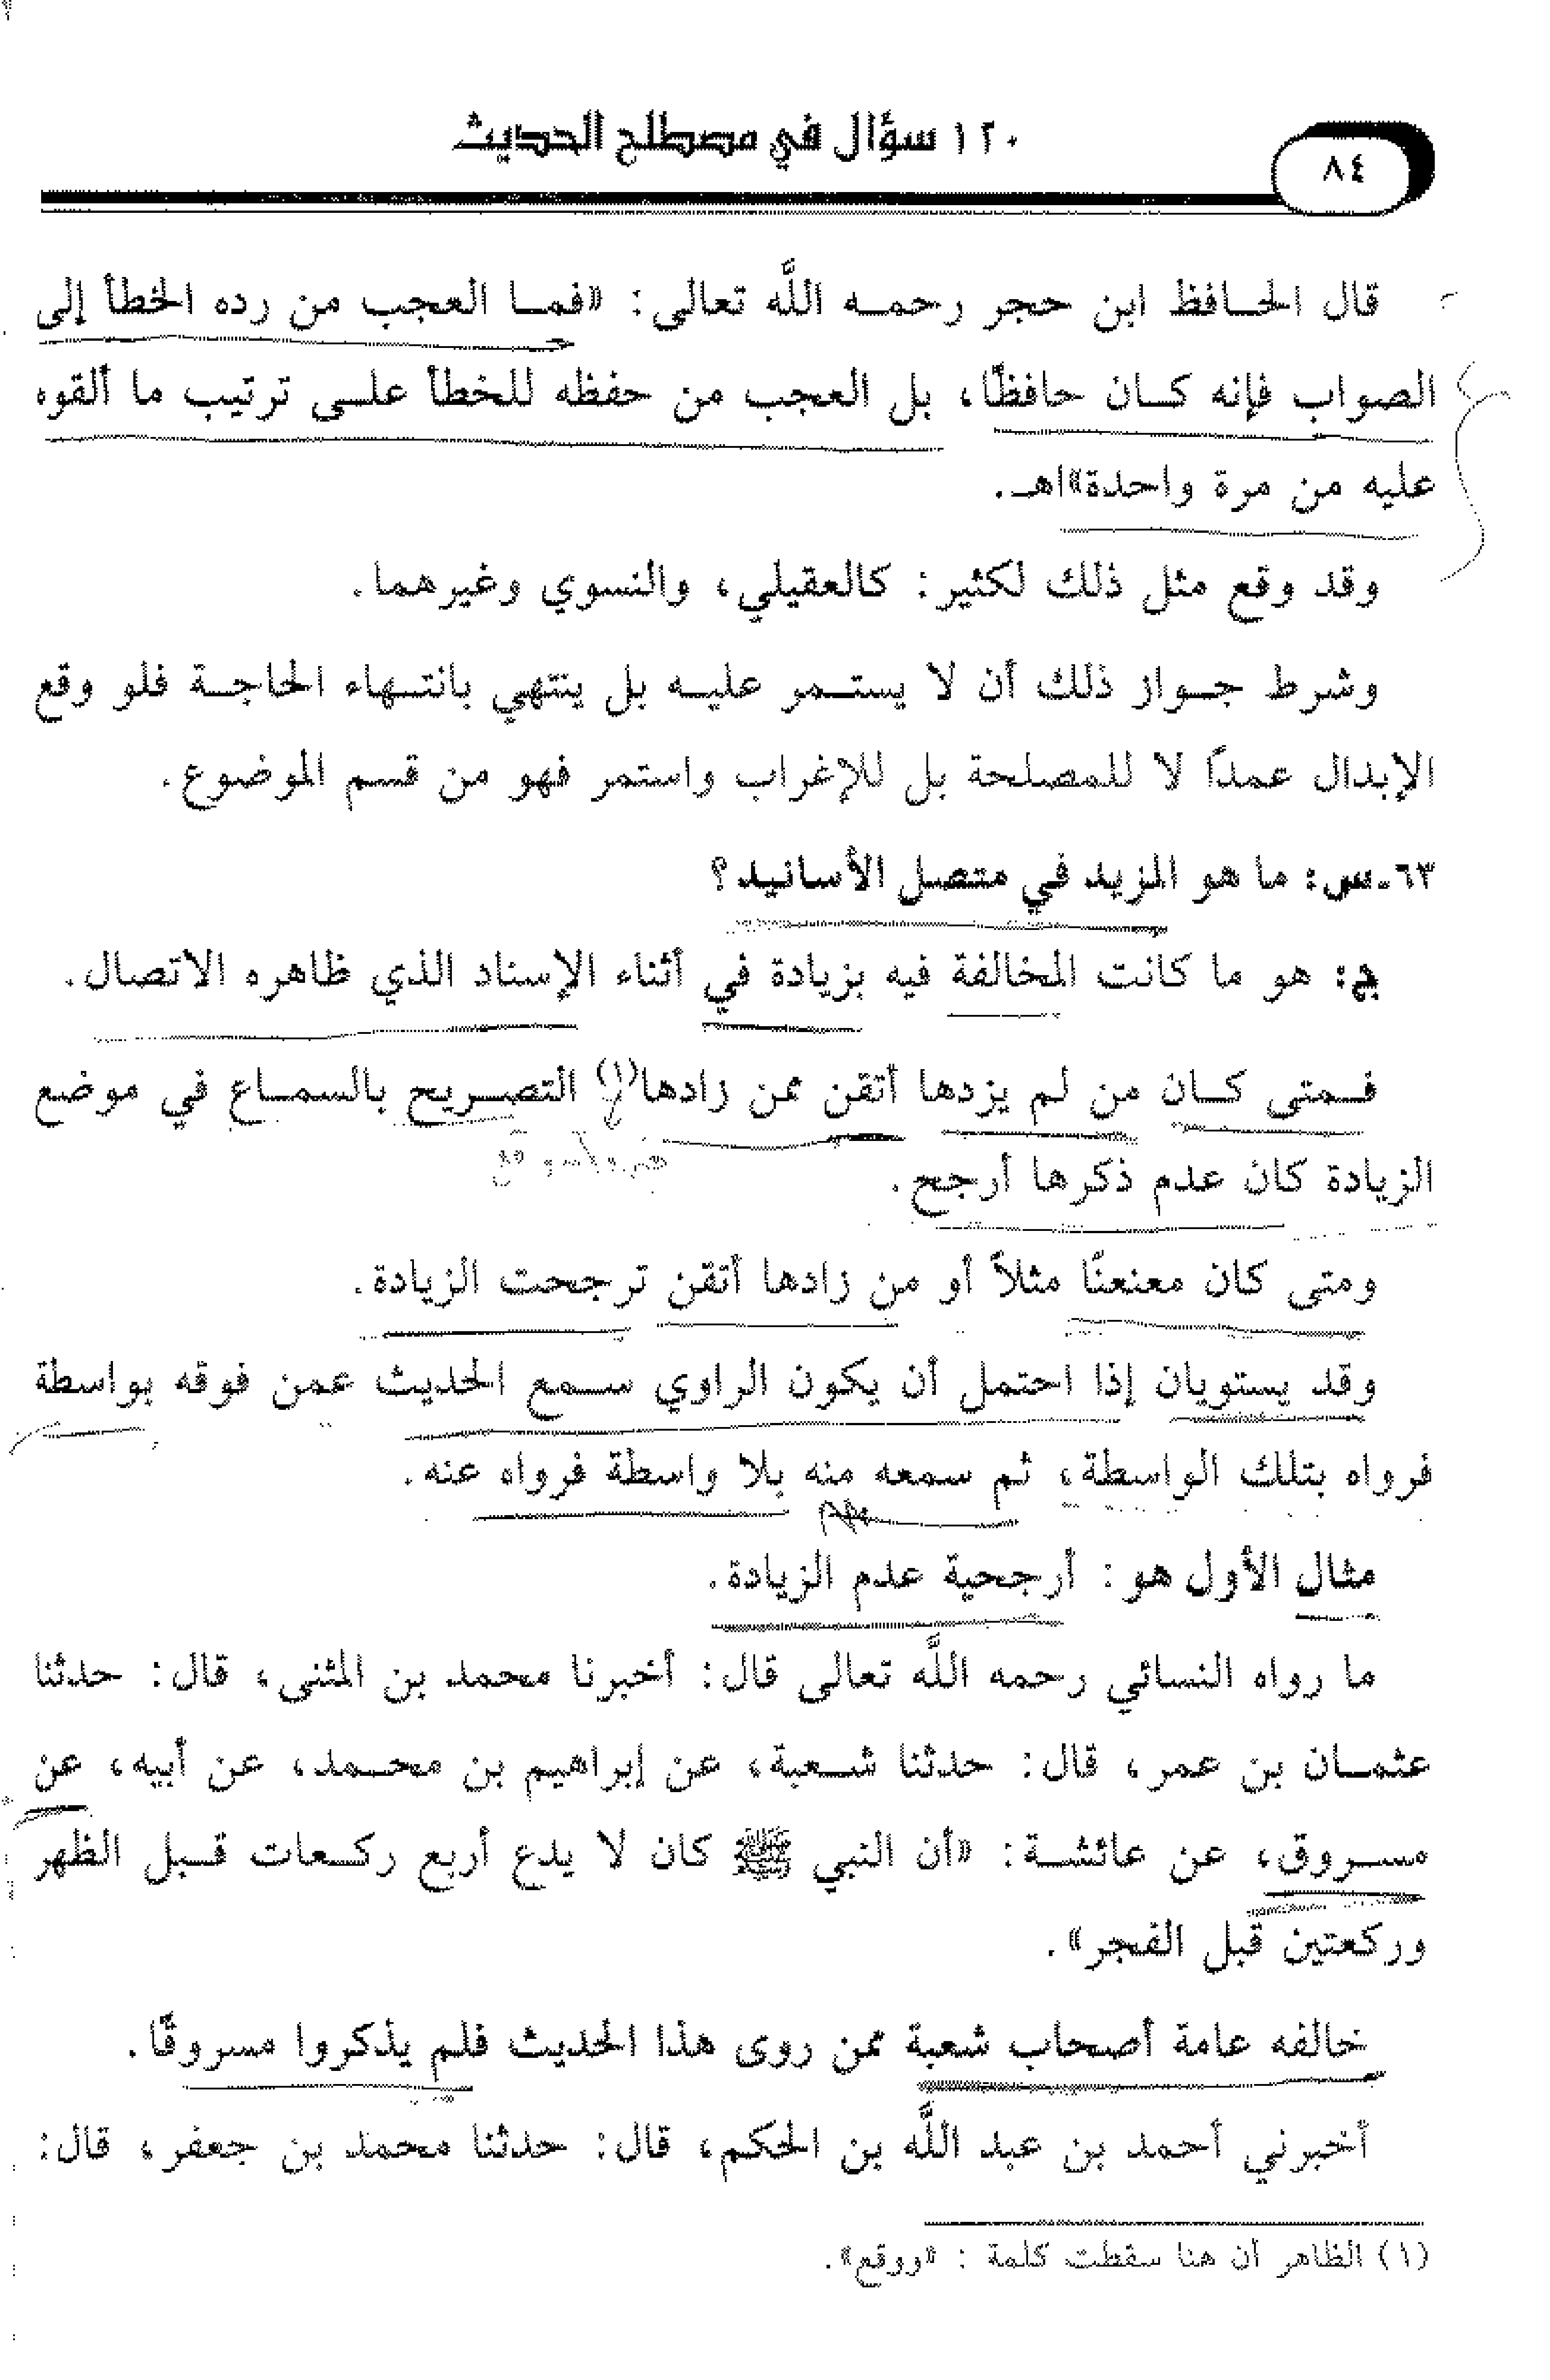 ١٢٠ سؤال في مصطلح الحديث
٨٤
قال الحافظ ابن حجر رحمه اللَّه تعالى: «فما العجب من رده الخطأ إلى
الصواب فإنه كان حافظًا، بل العجب من حفظه للخطأ على ترتيب ما ألقوه
عليه من مرة واحدة»اهـ.
وقد وقع مثل ذلك لكثير: كالعقيلي، والنسوي وغيرهما.
وشرط جواز ذلك أن لا يستمر عليه بل ينتهي بانتهاء الحاجة فلو وقع
الإبدال عمدًا لا للمصلحة بل للإغراب واستمر فهو من قسم الموضوع.
٦٣-س: ما هو المزيد في متصل الأسانيد؟
ج: هو ما كانت المخالفة فيه بزيادة في أثناء الإسناد الذي ظاهره الاتصال.
فمتى كان من لم يزدها أتقن ممن زادها(١) التصريح بالسماع في موضع
الزيادة كان عدم ذكرها أرجح.
ومتى كان معنعنًا مثلاً أو من زادها أتقن ترجحت الزيادة.
وقد يستويان إذا احتمل أن يكون الراوي سمع الحديث عمن فوقه بواسطة
فرواه بتلك الواسطة، ثم سمعه منه بلا واسطة فرواه عنه.
مثال الأول هو: أرجحية عدم الزيادة.
ما رواه النسائي رحمه اللَّه تعالى قال: أخبرنا محمد بن المثنى، قال: حدثنا
عثمان بن عمر، قال: حدثنا شعبة، عن إبراهيم بن محمد، عن أبيه، عن
مسروق، عن عائشة: «أن النبي ﷺ كان لا يدع أربع ركعات قبل الظهر
وركعتين قبل الفجر».
خالفه عامة أصحاب شعبة ممن روى هذا الحديث فلم يذكروا مسروقًا.
أخبرني أحمد بن عبد اللَّه بن الحكم، قال: حدثنا محمد بن جعفر، قال:
(١) الظاهر أن هنا سقطت كلمة : «ووقع».